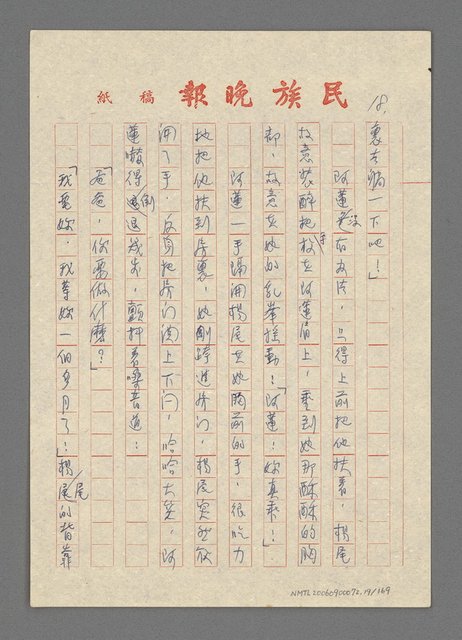 民族晚報 稿紙
18.
裏去躺一下吧!」
阿蓮沒有办法,只得上前把他扶着,楊尾
故意裝醉把手在阿蓮肩上,垂到她那酥酥的胸
部,故意在她的乳峯搖動:「阿蓮!妳真乖!」
阿蓮一手隔開楊尾在她胸前的手,很吃力
地把他扶到房裏,她剛跨進房门,楊尾突然放
開了手,反身把房门關上下闩,哈哈大笑,阿
蓮嚇得倒退幾步,顫抖着嗓音道:
「爸爸,你要做什麼?」
「我要妳,我等妳一個多月了!」楊尾的背靠
NMTL20060900072,19/169